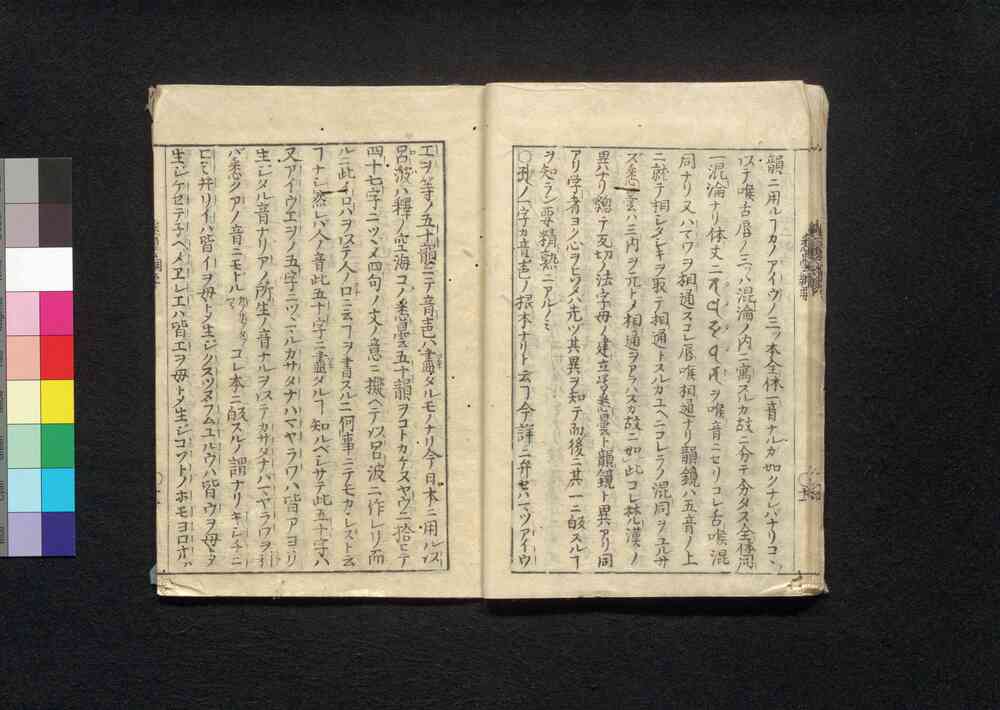 韻ニ用ルフカノアイウノ三ツ本全体一音ナルカ如クナレバナリコヽ
以テ喉舌唇ノ三ツハ混淪ノ内ニ寓スルカ故ニ分テ分タス全体同
一混淪ナリ体文ニ ヲ喉音ニセリコレ舌喉混
同ナリ又ハマワヲ相通スコレ唇喉相通ナリ韻鏡ハ五音ノ上
ニ就テ相レタシキヲ取テ相通トスルカユヘニコレラノ混同ヲユルサ
ズ悉曇ハ三内ヲ元トノ相通ヲアラハスカ故ニ如此コレ梵漢ノ
異ナリ總テ反切ノ法字母ノ建立等悉曇ト韻鏡ト異アリ同
アリ学者ヨク心ヲヒソメ先ツ其異ヲ知テ而後ニ其一ニ皈スルフ
ヲ知ラン要精熟ニアルノミ
〇孔ノ一字カ音声ノ根本ナリト云フ今詳ニ弁セハマツアイウ
エヲ等ノ五十韻ニテ音声ハ盡タルモノナリ今日本ニ用ル以
呂波ハ釋ノ空海コノ悉曇五十韻ヲコトカケスヤウニ拾ヒテ
四十七字ニツヽメ四句ノ文ノ意ニ擬ヘテ以呂波ニ作レリ而
ルニ此イロハヲ以テ人ノ口ニ云フヲ書スルニ何事ニテモカヽレスト云
フナシ然レハ人ノ音此五十字ニ盡タルフ知ルベシサテ此五十字ハ
又アイウエヲノ五字ニツヽマルカサタナハマヤラワハ皆アヨリ
生シタル音ナリアノ所生ノ音ナルヲ以テカサタナハマヤラワヲ
バ悉クアノ音ニモトルコレ本ニ皈スルノ謂ナリキシチニ
ヒミ井リイハ皆イヲ母トメ生ジクスツヌフムユルウハ皆ウヲ母トメ
生シケセテネヘメエレエハ皆エヲ母トメ生シコソトノホモヨロオハ